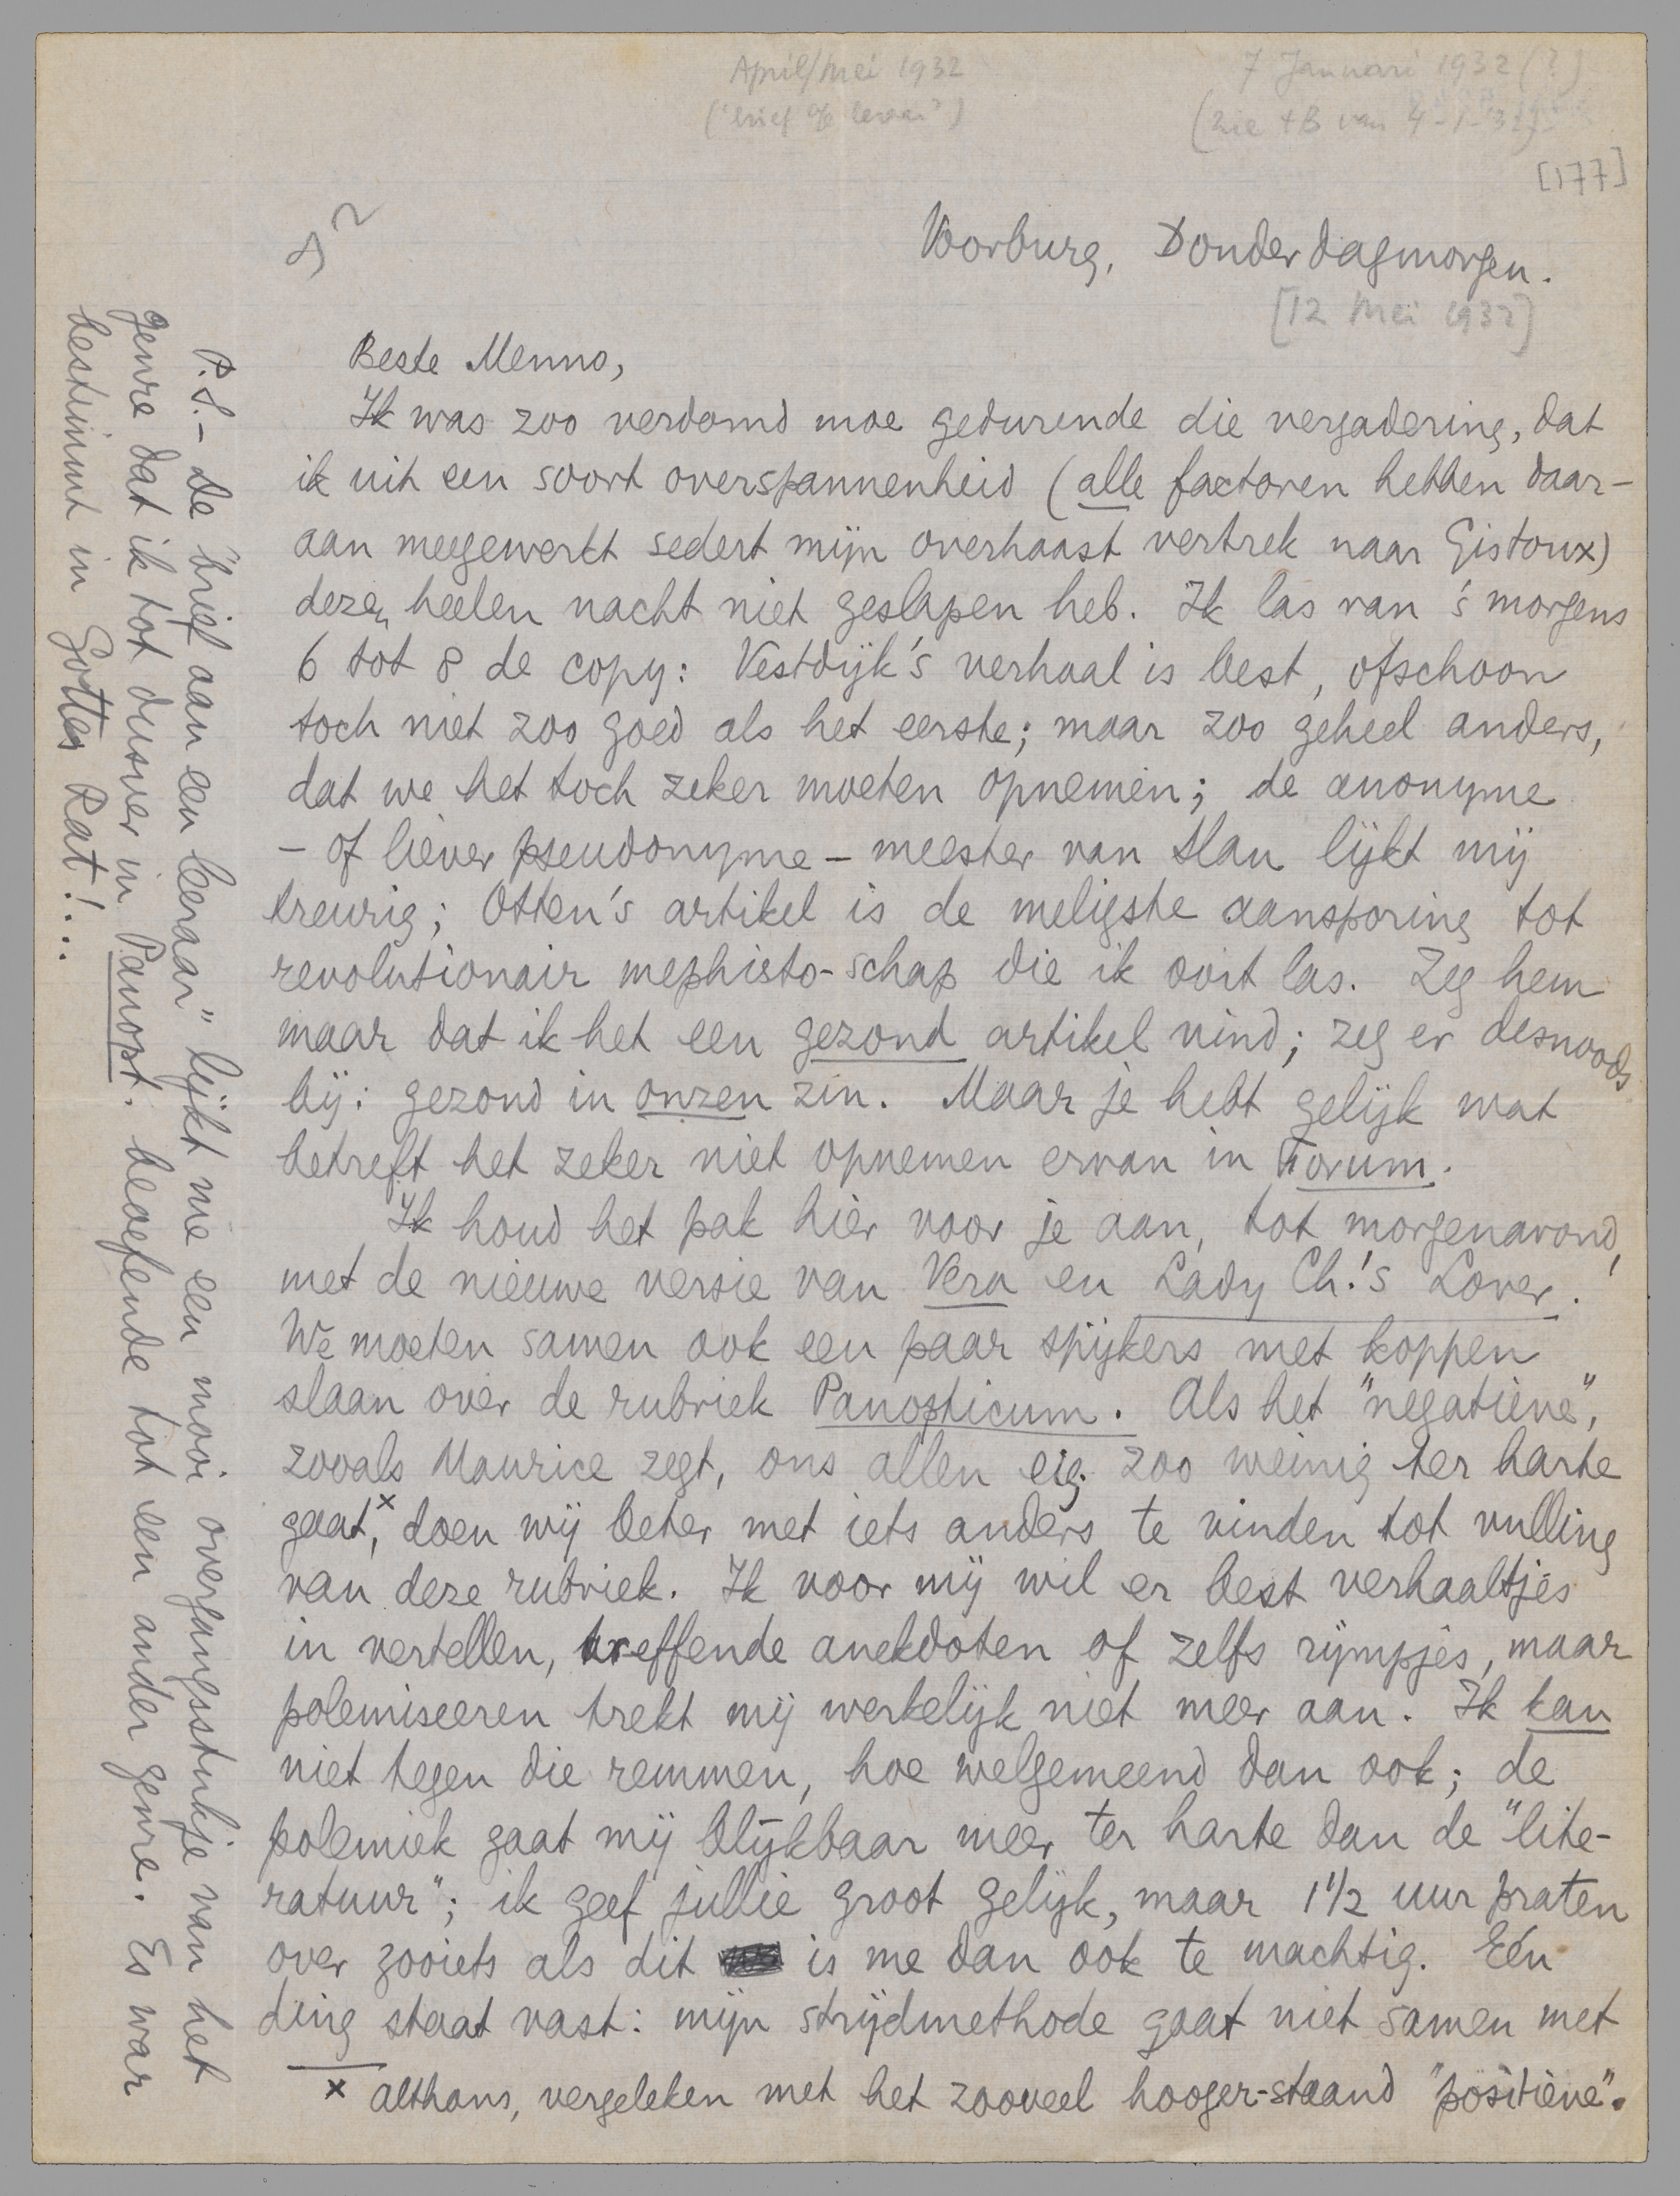 April/Mei 1932
7 Januari 1932 (?)
(zie tB van 4-1-32)
[177]
Voorburg, Donderdagmorgen.
[12 Mei 1932]
Beste Menno,
Ik was zoo verdomd moe gedurende die vergadering, dat
ik uit een soort overspannenheid (alle factoren hebben daar-
aan meegewerkt sedert mijn overhaast vertrek naar Gistoux)
dezen heelen nacht niet geslapen heb. Ik las van 's morgens
6 tot 8 de copy: Vestdijk's verhaal is best, ofschoon
toch niet zoo goed als het eerste; maar zoo geheel anders,
dat we het toch zeker moeten opnemen; de anonyme
- of liever pseudonyme - meester van Slau lijkt mij
treurig; Otten's artikel is de meligste aansporing tot
revolutionair mephisto-schap die ik ooit las. Zeg hem
maar dat ik het een gezond artikel vind; zeg er desnoods
bij: gezond in onzen zin. Maar je hebt gelijk wat
betreft het zeker niet opnemen ervan in Forum.
Ik houd het pak hier voor je aan, tot morgenavond,
met de nieuwe versie van Vera en Lady Ch.'s Lover.
We moeten samen ook een paar spijkers met koppen
slaan over de rubriek Panopticum. Als het "negatieve",
zooals Maurice zegt, ons allen eig. zoo weinig ter harte
gaat,x doen wij beter met iets anders te vinden tot vulling
van deze rubriek. Ik voor mij wil er best verhaaltjes
in vertellen, treffende anekdoten of zelfs rijmpjes, maar
polemiseeren trekt mij werkelijk niet meer aan. Ik kan
niet tegen die remmen, hoe welgemeend dan ook; de
polemiek gaat mij blijkbaar meer ter harte dan de "lite-
ratuur"; ik geef jullie groot gelijk, maar 1 1/2 uur praten
over zooiets als dit is me dan ook te machtig. Eén
ding staat vast: mijn strijdmethode gaat niet samen met
x althans, vergeleken met het zooveel hooger-staand "positieve".
P.S. - De "brief aan een leraar" lijkt me een mooi overgangsstukje van het
genre dat ik tot dusver in Panopt. beoefende tot een ander genre. Es war
bestimmt in Gottes Rat!...